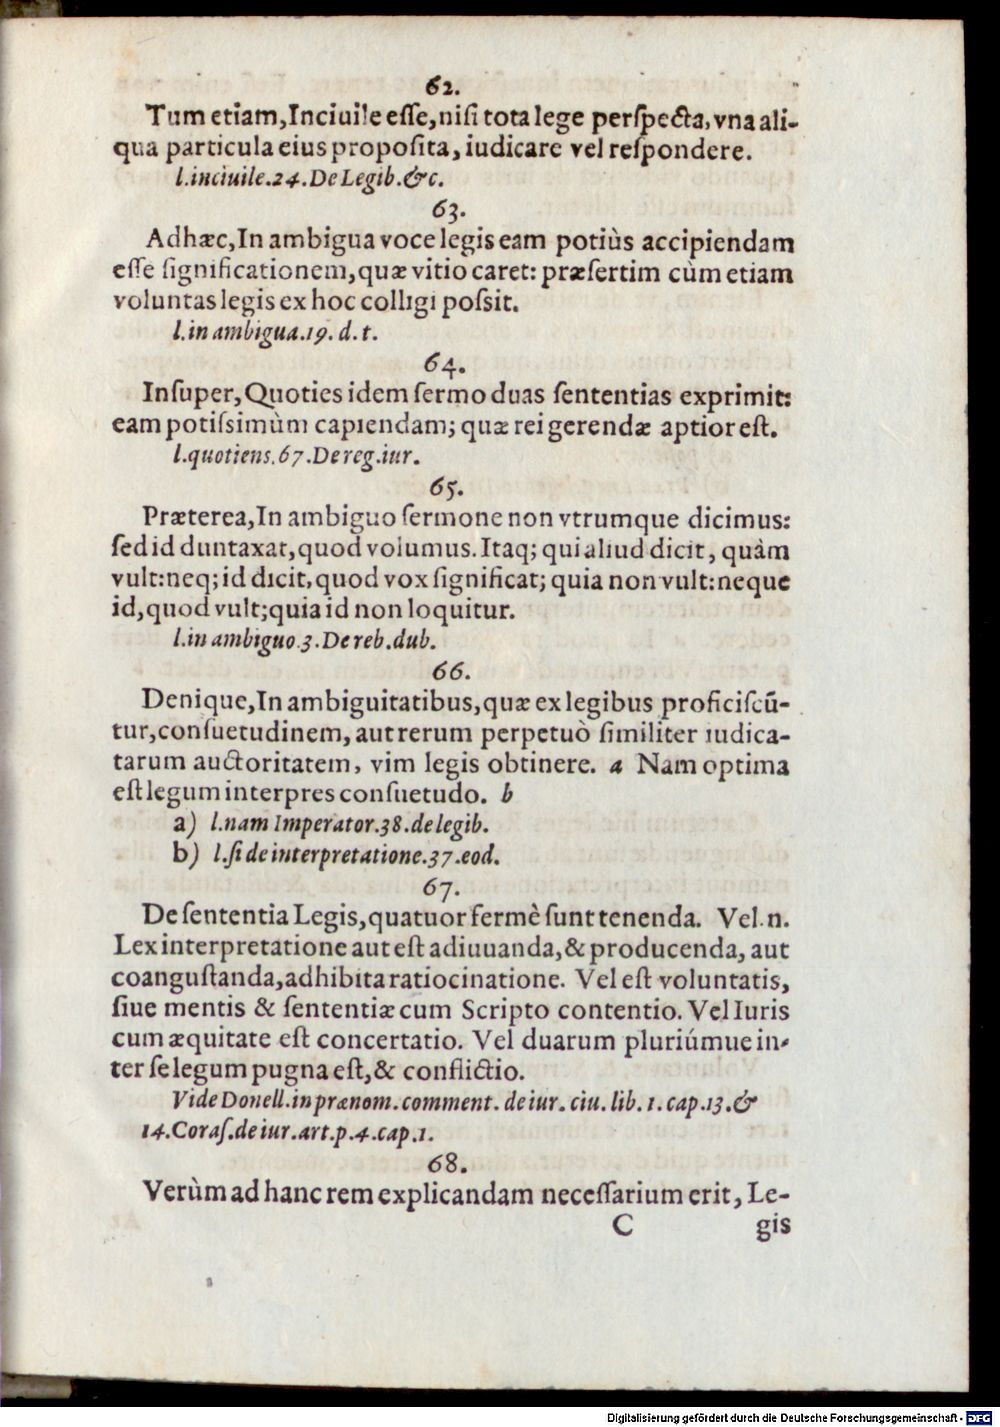 62.
Tum etiam, Inciuile eſſe, niſi tota lege perſpecta, vna ali-
qua particula eius propoſita, iudicare vel reſpondere.
l. inciuile. 24. De Legib. &c.
63.
Ad hæc, In ambigua voce legis eam potiùs accipiendam
eſſe ſignificationem, quæ vitio caret: præſertim cùm etiam
voluntas legis ex hoc colligi poſsit.
l. in ambigua. 19. d. t.
64.
Inſuper, Quoties idem ſermo duas ſententias exprimit:
eam potiſsimùm capiendam; quæ rei gerendæ aptior eſt.
l. quotiens. 67. De reg. iur.
65.
Præterea, In ambiguo ſermone non vtrumque dicimus:
ſed id duntaxat, quod volumus. Itaq; qui aliud dicit, quàm
vult: neq; id dicit, quod vox ſignificat; quia non vult: neque
id, quod vult; quia id non loquitur.
l. in ambiguo. 3. De reb. dub.
66.
Denique, In ambiguitatibus, quæ ex legibus proficiſcū-
tur, conſuetudinem, aut rerum perpetuò ſimiliter iudica-
tarum auctoritatem, vim legis obtinere. a Nam optima
eſt legum interpres conſuetudo. b
a) l. nam Imperator. 38. de legib.
b) l. ſi de interpretatione. 37. eod.
67.
De ſententia Legis, quatuor fermè ſunt tenenda. Vel. n.
Lex interpretatione aut eſt adiuuanda, & producenda, aut
coanguſtanda, adhibita ratiocinatione. Vel eſt voluntatis,
ſiue mentis & ſententiæ cum Scripto contentio. Vel Iuris
cum æquitate eſt concertatio. Vel duarum pluriúmue in-
ter ſe legum pugna eſt, & conflictio.
Vide Donell. in prænom. comment. de iur. ciu. lib. 1. cap. 13. &
14. Coraſ. de iur. art. p. 4. cap. 1.
68.
Verùm ad hanc rem explicandam neceſſarium erit, Le-
C gis
Digitalisierung gefördert durch die Deutsche Forschungsgemeinschaft - DFG